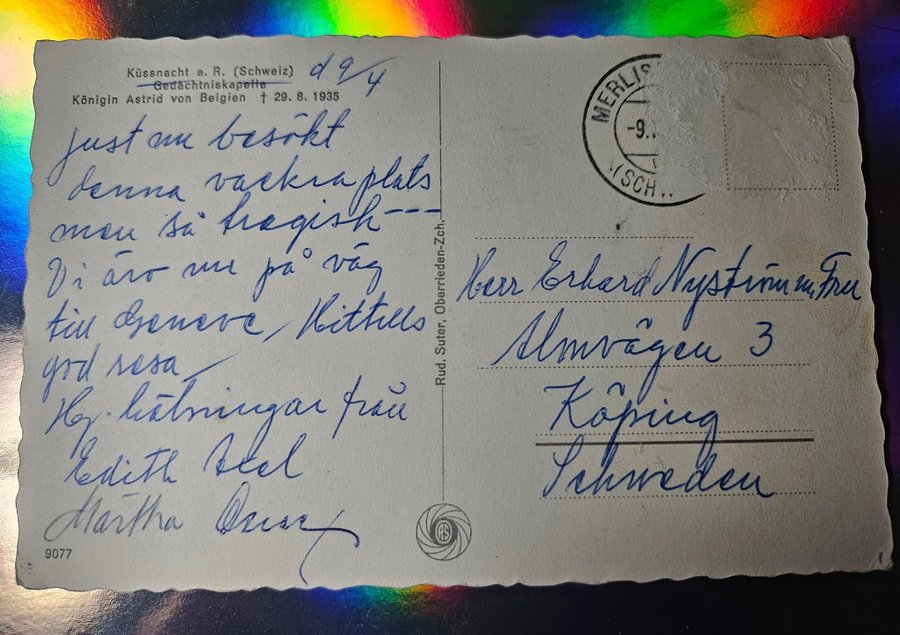 Küssnacht a. R. (Schweiz)
Gedächtniskapelle
Königin Astrid von Belgien † 29. 8. 1935
d 9/4
just nu besökt
denna vackra plats
men så tragisk ---
Vi äro nu på väg
till Geneve, Hittills
god resa
Hj. hälsningar från
Edith Axel
Märtha Oscar
9077
Rud. Suter, Oberrieden-Zch.
RS
-9.
(SCH
Herr Erhard Nyström m Fru
Almvägen 3
Köping
Schweden